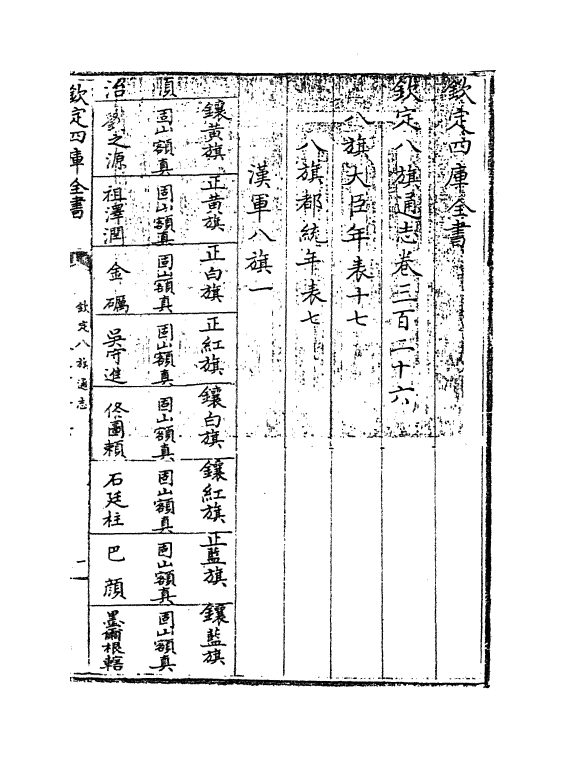 欽定四庫全書
欽定八旗通志卷三百二十六
八旗大臣年表十七
八旗都統年表七
漢軍八旗一
鑲黃旗 正黃旗 正白旗 正紅旗 鑲白旗 鑲紅旗 正藍旗 鑲藍旗
順 固山額真 固山額真 固山額真 固山額真 固山額真 固山額真 固山額真 固山額真
治 劉之源 祖澤潤 金礪 吳守進 佟圖賴 石廷柱 巴顔 墨爾根轄
欽定四庫全書
欽定八旗通志